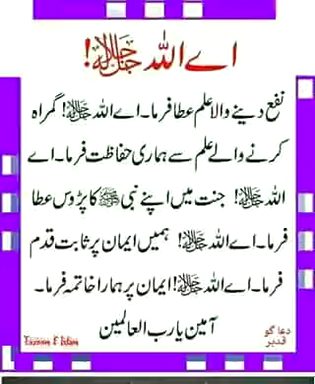 اے اللہ ﷻ!
نفع دینے والا علم عطا فرما۔ اے اللہ ﷻ! گمراہ
کرنے والے علم سے ہماری حفاظت فرما۔ اے
اللہ ﷻ! جنت میں اپنے نبی ﷺ کا پڑوس عطا
فرما۔ اے اللہ ﷻ! ہمیں ایمان پر ثابت قدم
فرما۔ اے اللہ ﷻ! ایمان پر ہمارا خاتمہ فرما۔
آمین یا رب العالمین
دعا گو
قدیر